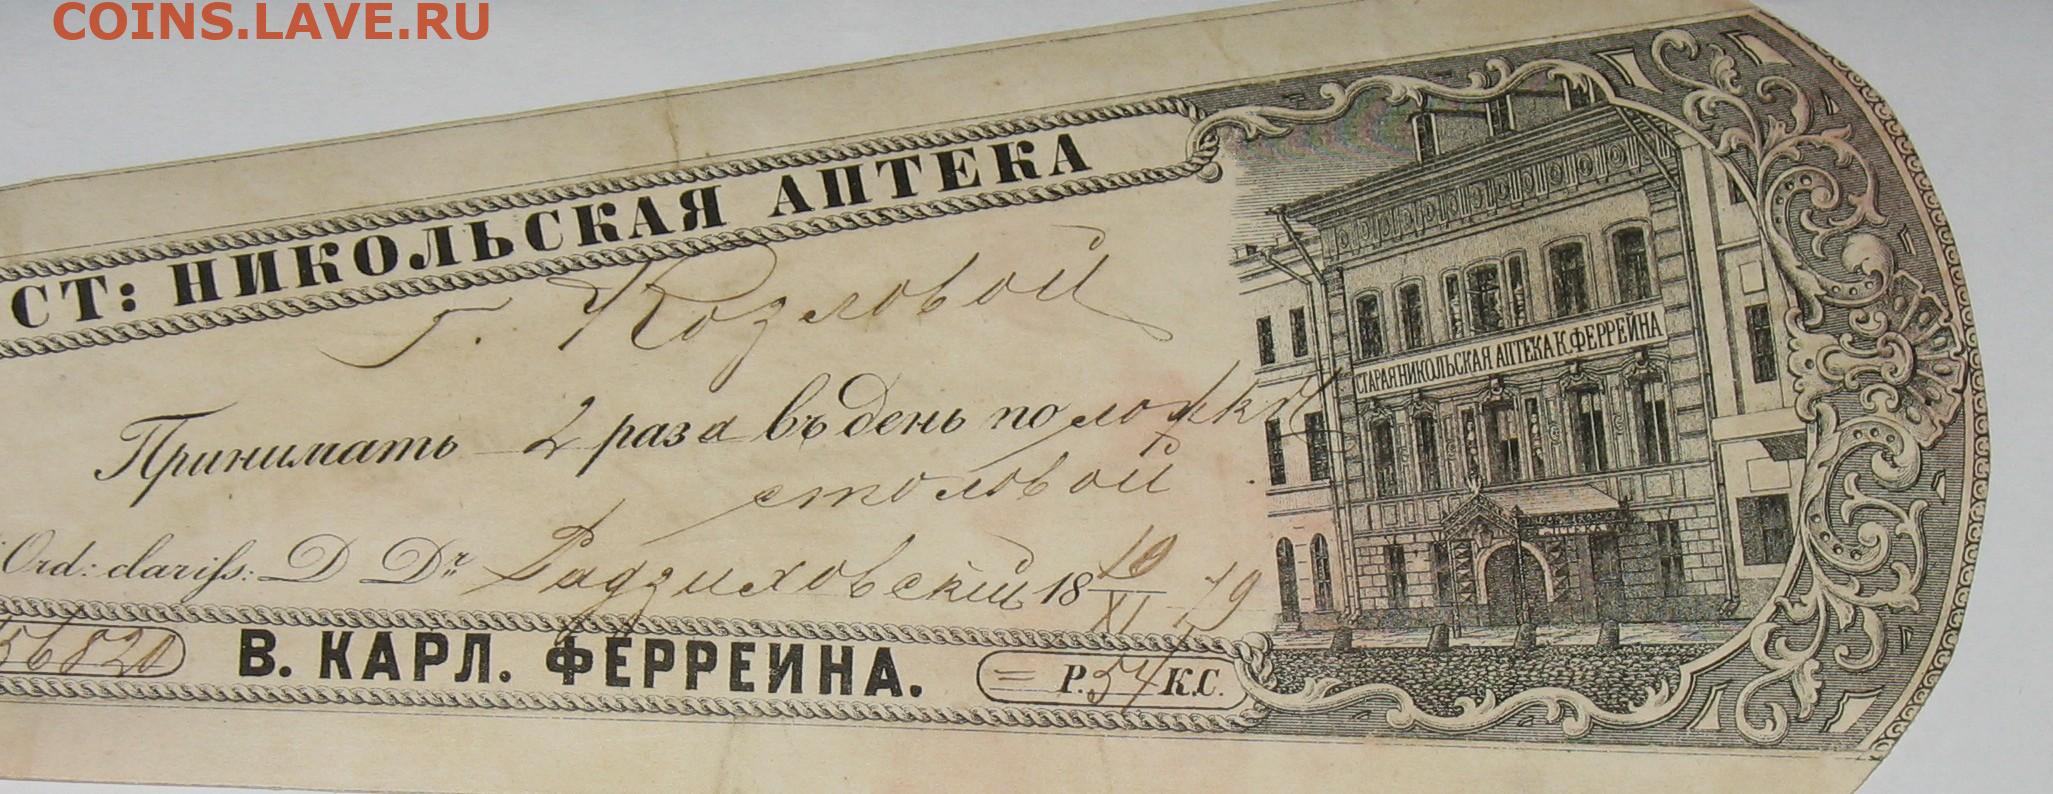 COINS.LAVE.RU
СТ: НИКОЛЬСКАЯ АПТЕКА
г. Козловой
Принимать 2 раза въ день по ложкѣ
столовой
Ord: clariſs: D Dr Радзиховскій 18 19/XI 79
56820 В. КАРЛ. ФЕРРЕИНА. = Р. 54 К.С.
СТАРАЯ НИКОЛЬСКАЯ АПТЕКА К. ФЕРРЕЙНА
АПТЕКА